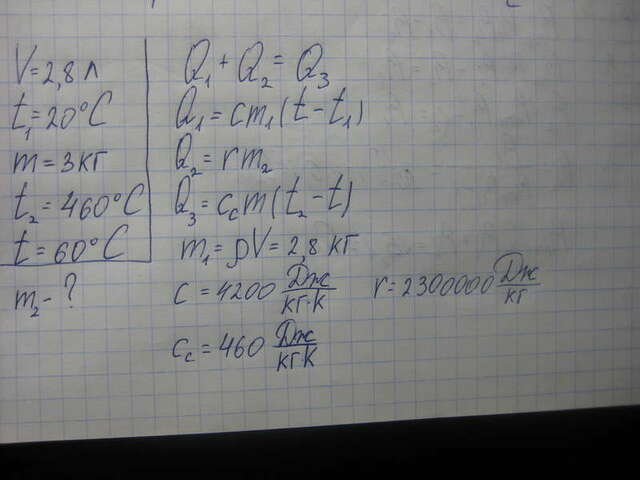 V=2,8 л
t₁=20°C
m=3кг
t₂=460°C
t=60°C
m₂-?
Q₁+Q₂=Q₃
Q₁=cm₁(t-t₁)
Q₂=rm₂
Q₃=c_cm(t₂-t)
m₁=ρV=2,8 кг
c=4200 Дж/кг·К r=2300000 Дж/кг
c_c=460 Дж/кг·К